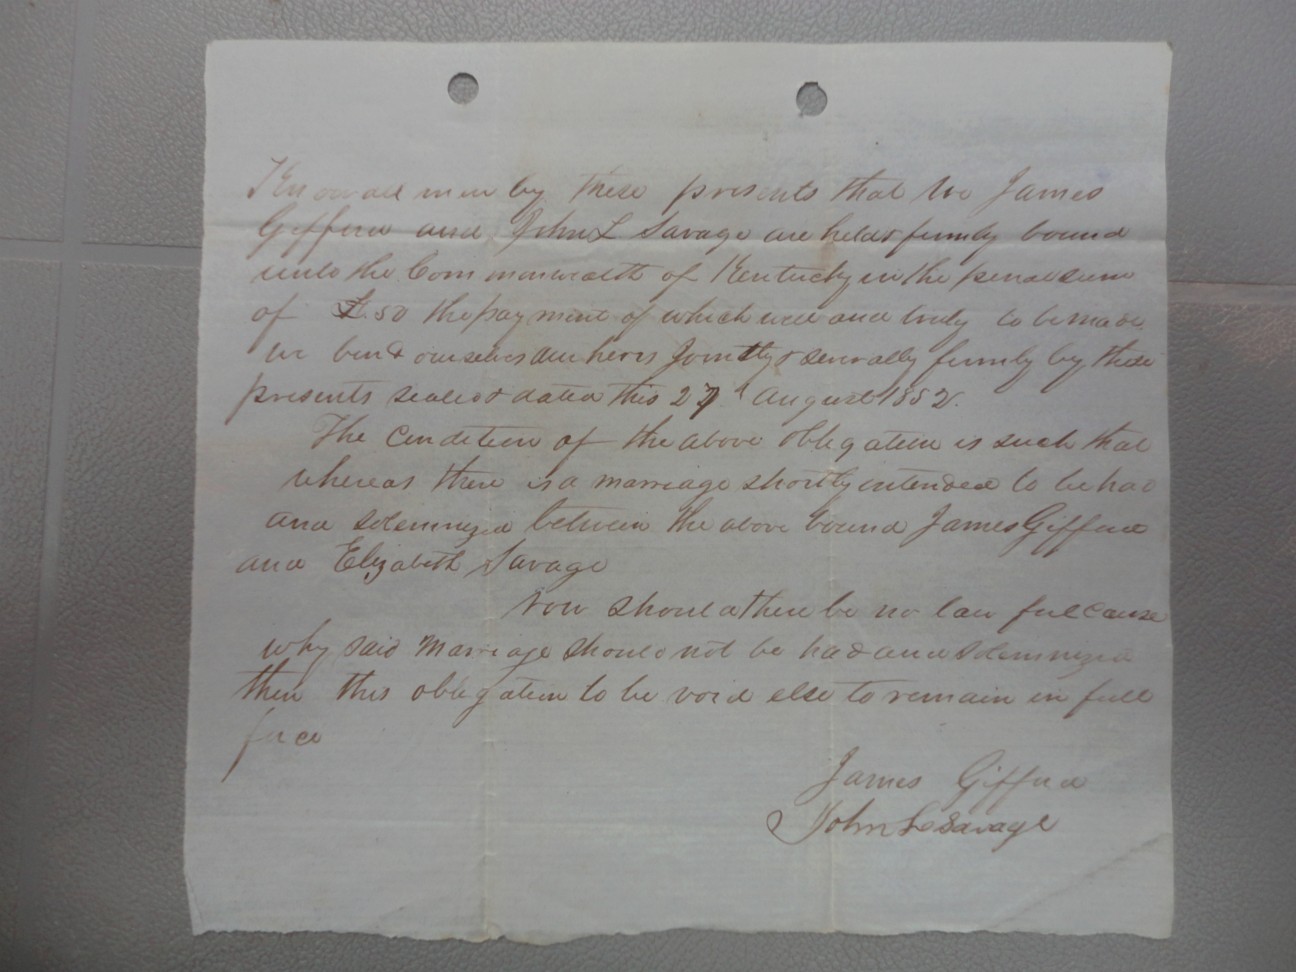 Know all men by these presents that We James
Gifford and John L Savage are held & firmly bound
unto the Commonwealth of Kentucky in the penal sum
of £50 the payment of which well and truly to be made
we bind ourselves our heirs Jointly & severally firmly by these
presents sealed & dated this 27 August 1852.
The Condition of the above obligation is such that
whereas there is a marriage shortly intended to be had
and solemnized between the above bound James Gifford
and Elizabeth Savage
Now should there be no lawful cause
why said Marriage should not be had and solemnized
then this obligation to be void else to remain in full
force
James Gifford
John L Savage